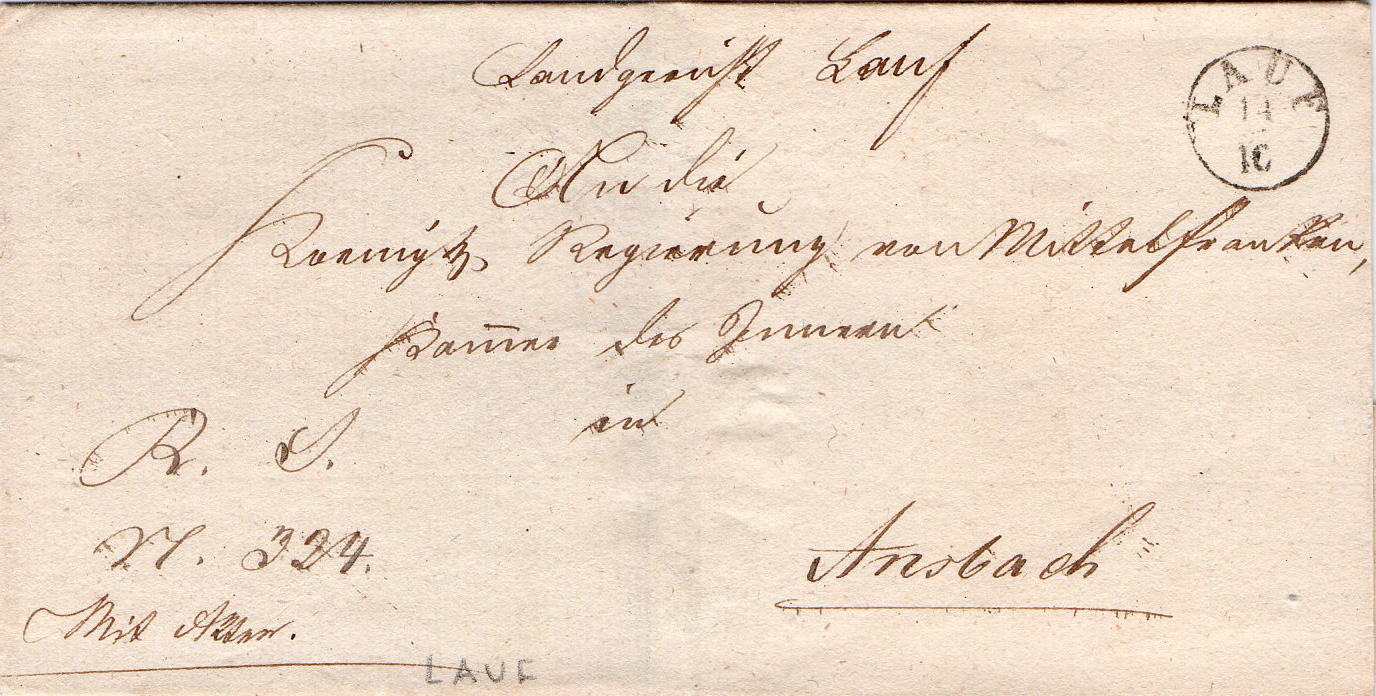 Landgericht Lauf
LAUF
14
10
An die
Koenigl. Regierung von Mittelfranken,
Kam̅er des Innern
in
R. S.
N. 324.
Ansbach
Mit Akten.
LAUF